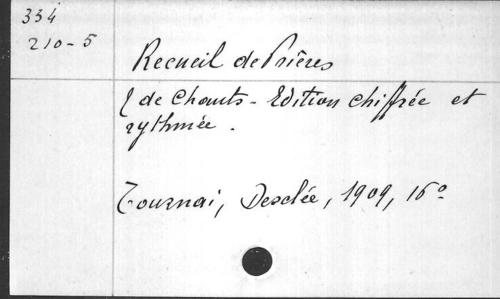 334
210-5
Recueil de Prières
& de Chants - Edition chiffrée et
rythmée.
Tournai, Desclée, 1909, 16°